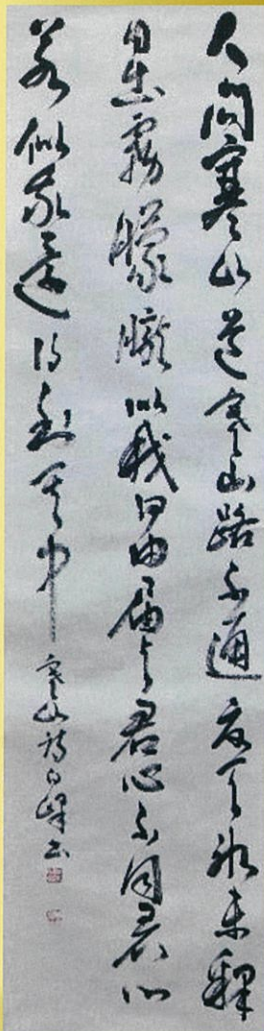 人問寒山道寒山路不通夏天冰未釋
日出霧朦朧似我何由届与君心不同君心
若似我還得到其中 寒山詩